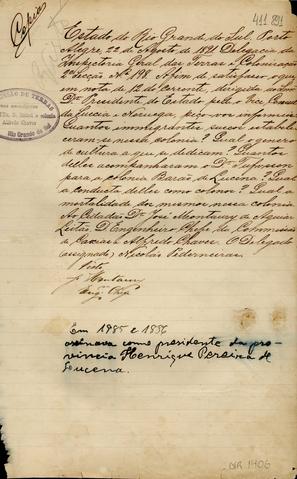 411.891
Copia
Estado do Rio Grande do Sul. Porto
Alegre, 22 de Agosto de 1891. Delegacia da
Inspectoria Geral das Terras e Colonisação
2ª Secção Nº 198. Afim de satisfazer o que
em nota de 12 do corrente, dirigida ao Cidadão
Dr. Presidente do Estado pelo Vice Consul
da Suecia e Noruega, peço-vos informeis
Quantos immigrantes suecos estabele
ceram-se nessa colonia? Qual o genero
de cultura a que se dedicam? Quantos
delles acompanharam o Dr.
para a colonia Barão de Lucena? Qual
a conducta delles como colonos? Qual a
mortalidade dos mesmos nessa colonia
Ao Cidadão Dr. José Montaury de Aguiar
Leitão D. Engenheiro Chefe da Commissão
de Caxias e Alfredo Chaves. O Delegado
(assignado) Nicolau Pederneiras.
Visto
Montaury
Engº Chefe
DE TERRAS
Alfredo Chaves
Rio Grande do Sul
Em 1985 e 1886
assinava como presidente da pro-
víncia Henrique Pereira de
Lucena.
DIR 1406